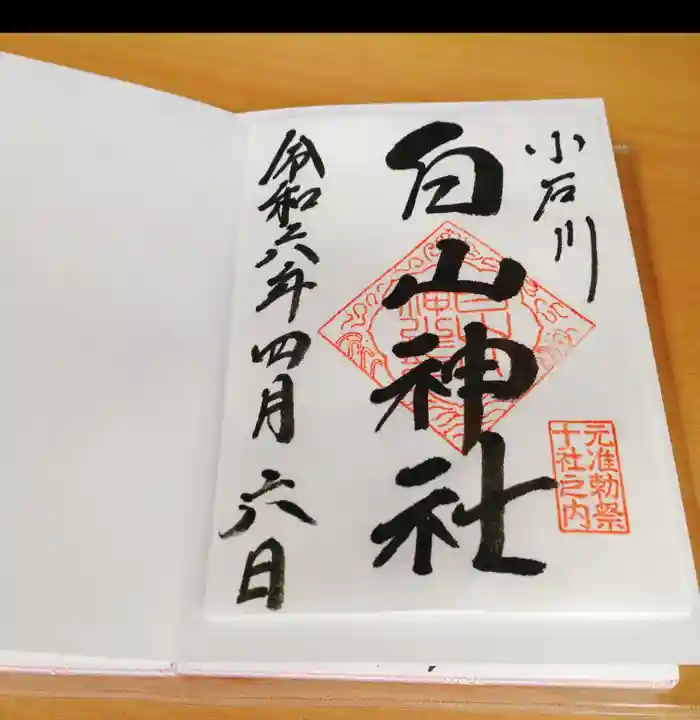 小石川
白山神社
令和六年四月六日
元准勅祭
十社之内